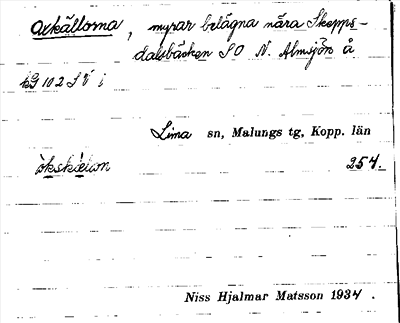 Oxkällorna, myrar belägna nära Skepps-
dalsbäcken SO N. Almsjön å
kG 102 S V i
Lima sn, Malungs tg, Kopp. län
254.
Niss Hjalmar Matsson 1934.